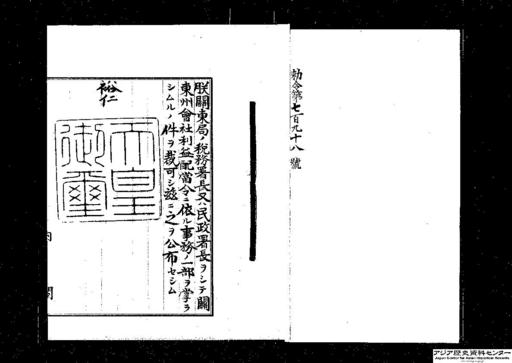 勅令第七百九十八號
朕關東局ノ税務署長又ハ民政署長ヲシテ關
東州會社利益配當令ニ依ル事務ノ一部ヲ掌ラ
シムルノ件ヲ裁可シ茲ニ之ヲ公布セシム
裕仁
天皇
御璽
内閣
アジア歴史資料センター
Japan Center for Asian Historical Records